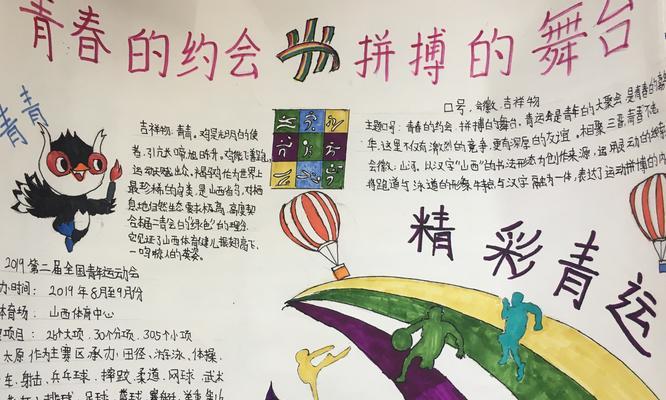 青春的约会 拼搏的舞台
青青
吉祥物:青青。鸡是光明的使
者,引亢长鸣,旭日东升。
运动
最珍稀的鸟类,是山西省鸟,对栖
息地自然生态要求极高,高度契
合本届二青会的“绿色”的理念。
它见证了山西体育健儿振翅高飞、
一鸣惊人的英姿。
口号,会徽,吉祥物
主题口号:青春的约会 拼搏的舞台,青运会是青年的大聚会 是青春的
华,这里不仅有激烈的竞争,更有深厚的友谊。相聚三晋,
会徽:山河。以汉字“山西”的书法形态为创作来源,运用
将跑道与泳道的形象 与汉字融为一体,表达了运动拼搏的
精彩青运
2019第二届全国青年运动会
办时间:2019年8月至9月份
体育场:山西体育中心
项目:26个大项、30个分项、305个小项
太原作为主赛区承办,田径、游泳、体操、
车、射击、乒乓球、摔跤、柔道、网球、武术
排球、足球、篮球、赛艇、